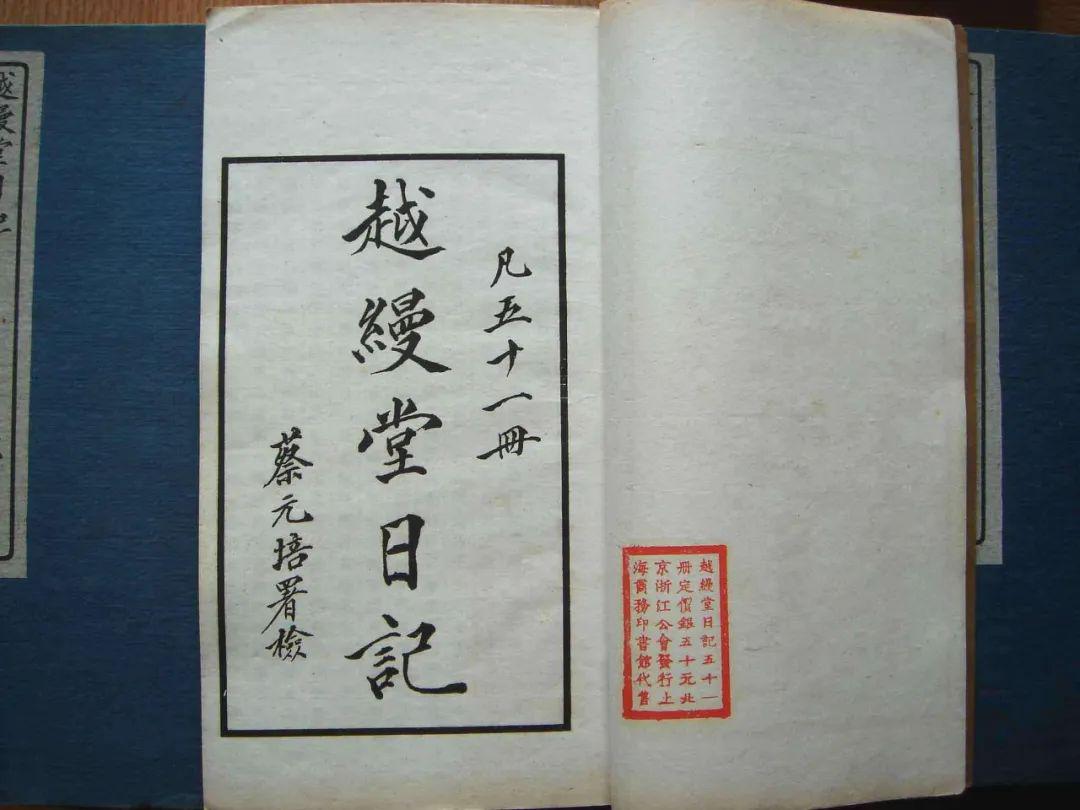 越縵堂日記五十一
冊定價銀五十元北
京浙江公會發行上
海商務印書館代售
凡五十一冊
越縵堂日記
蔡元培署檢
越縵堂日記